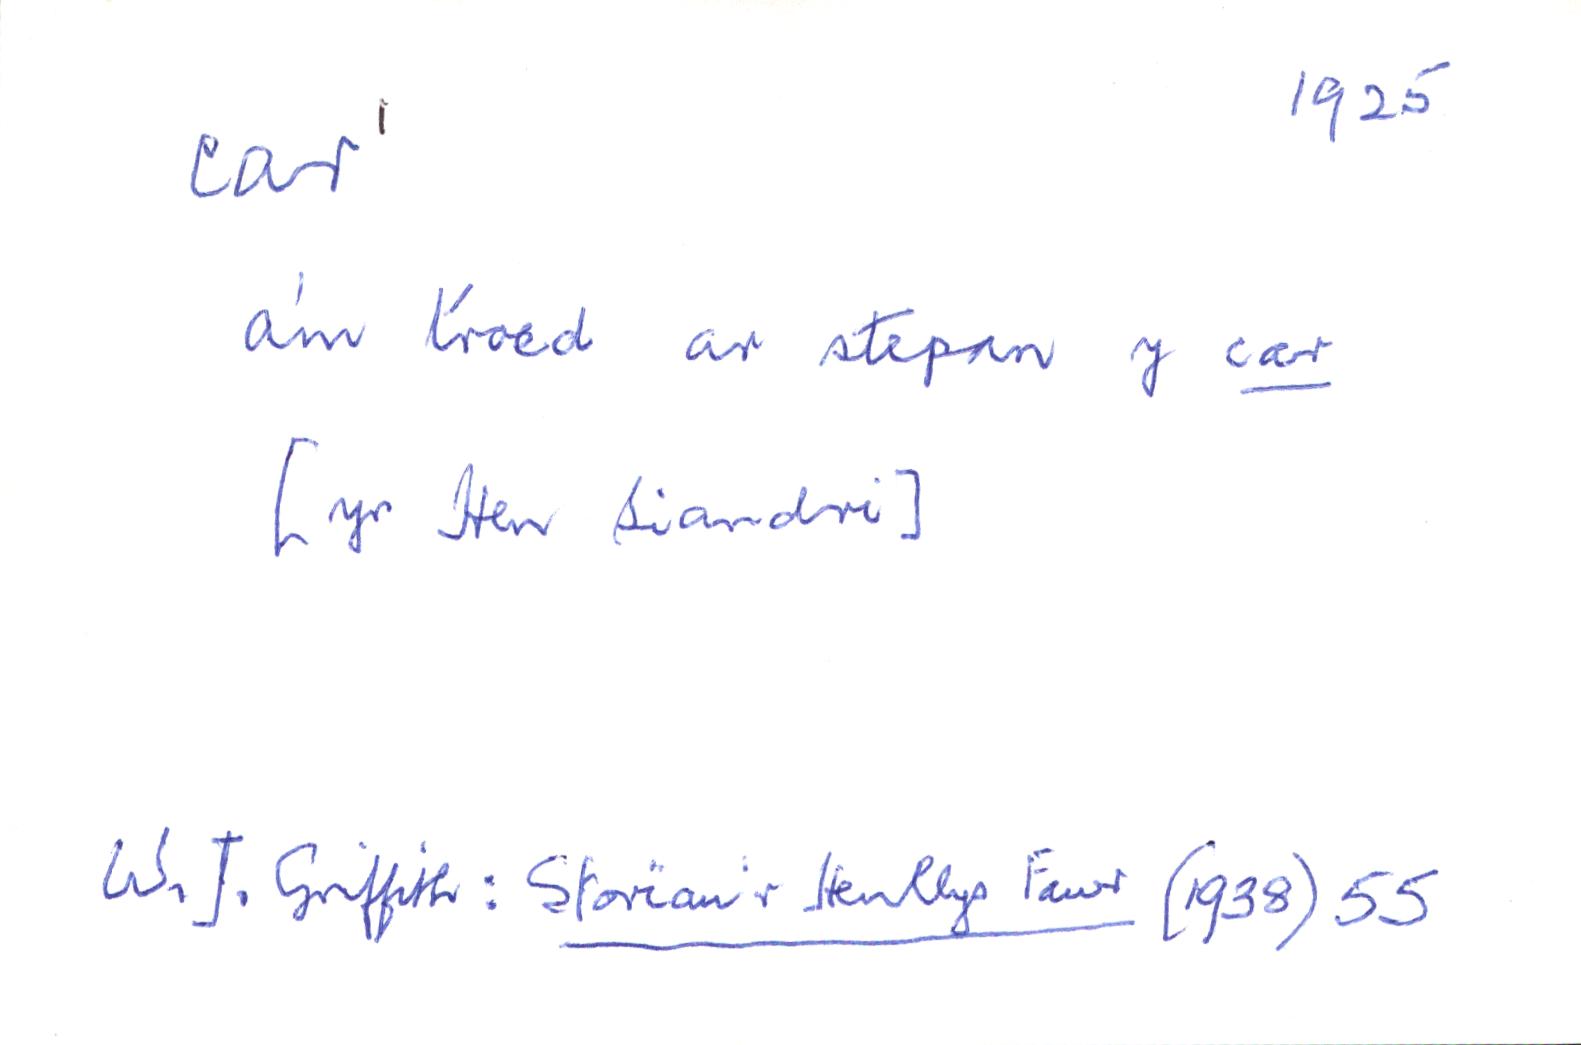 1925
car¹
a'm troed ar stepan y car
[yr Hen Siandri]
W. J. Griffith: Storïau'r Henllys Fawr (1938) 55